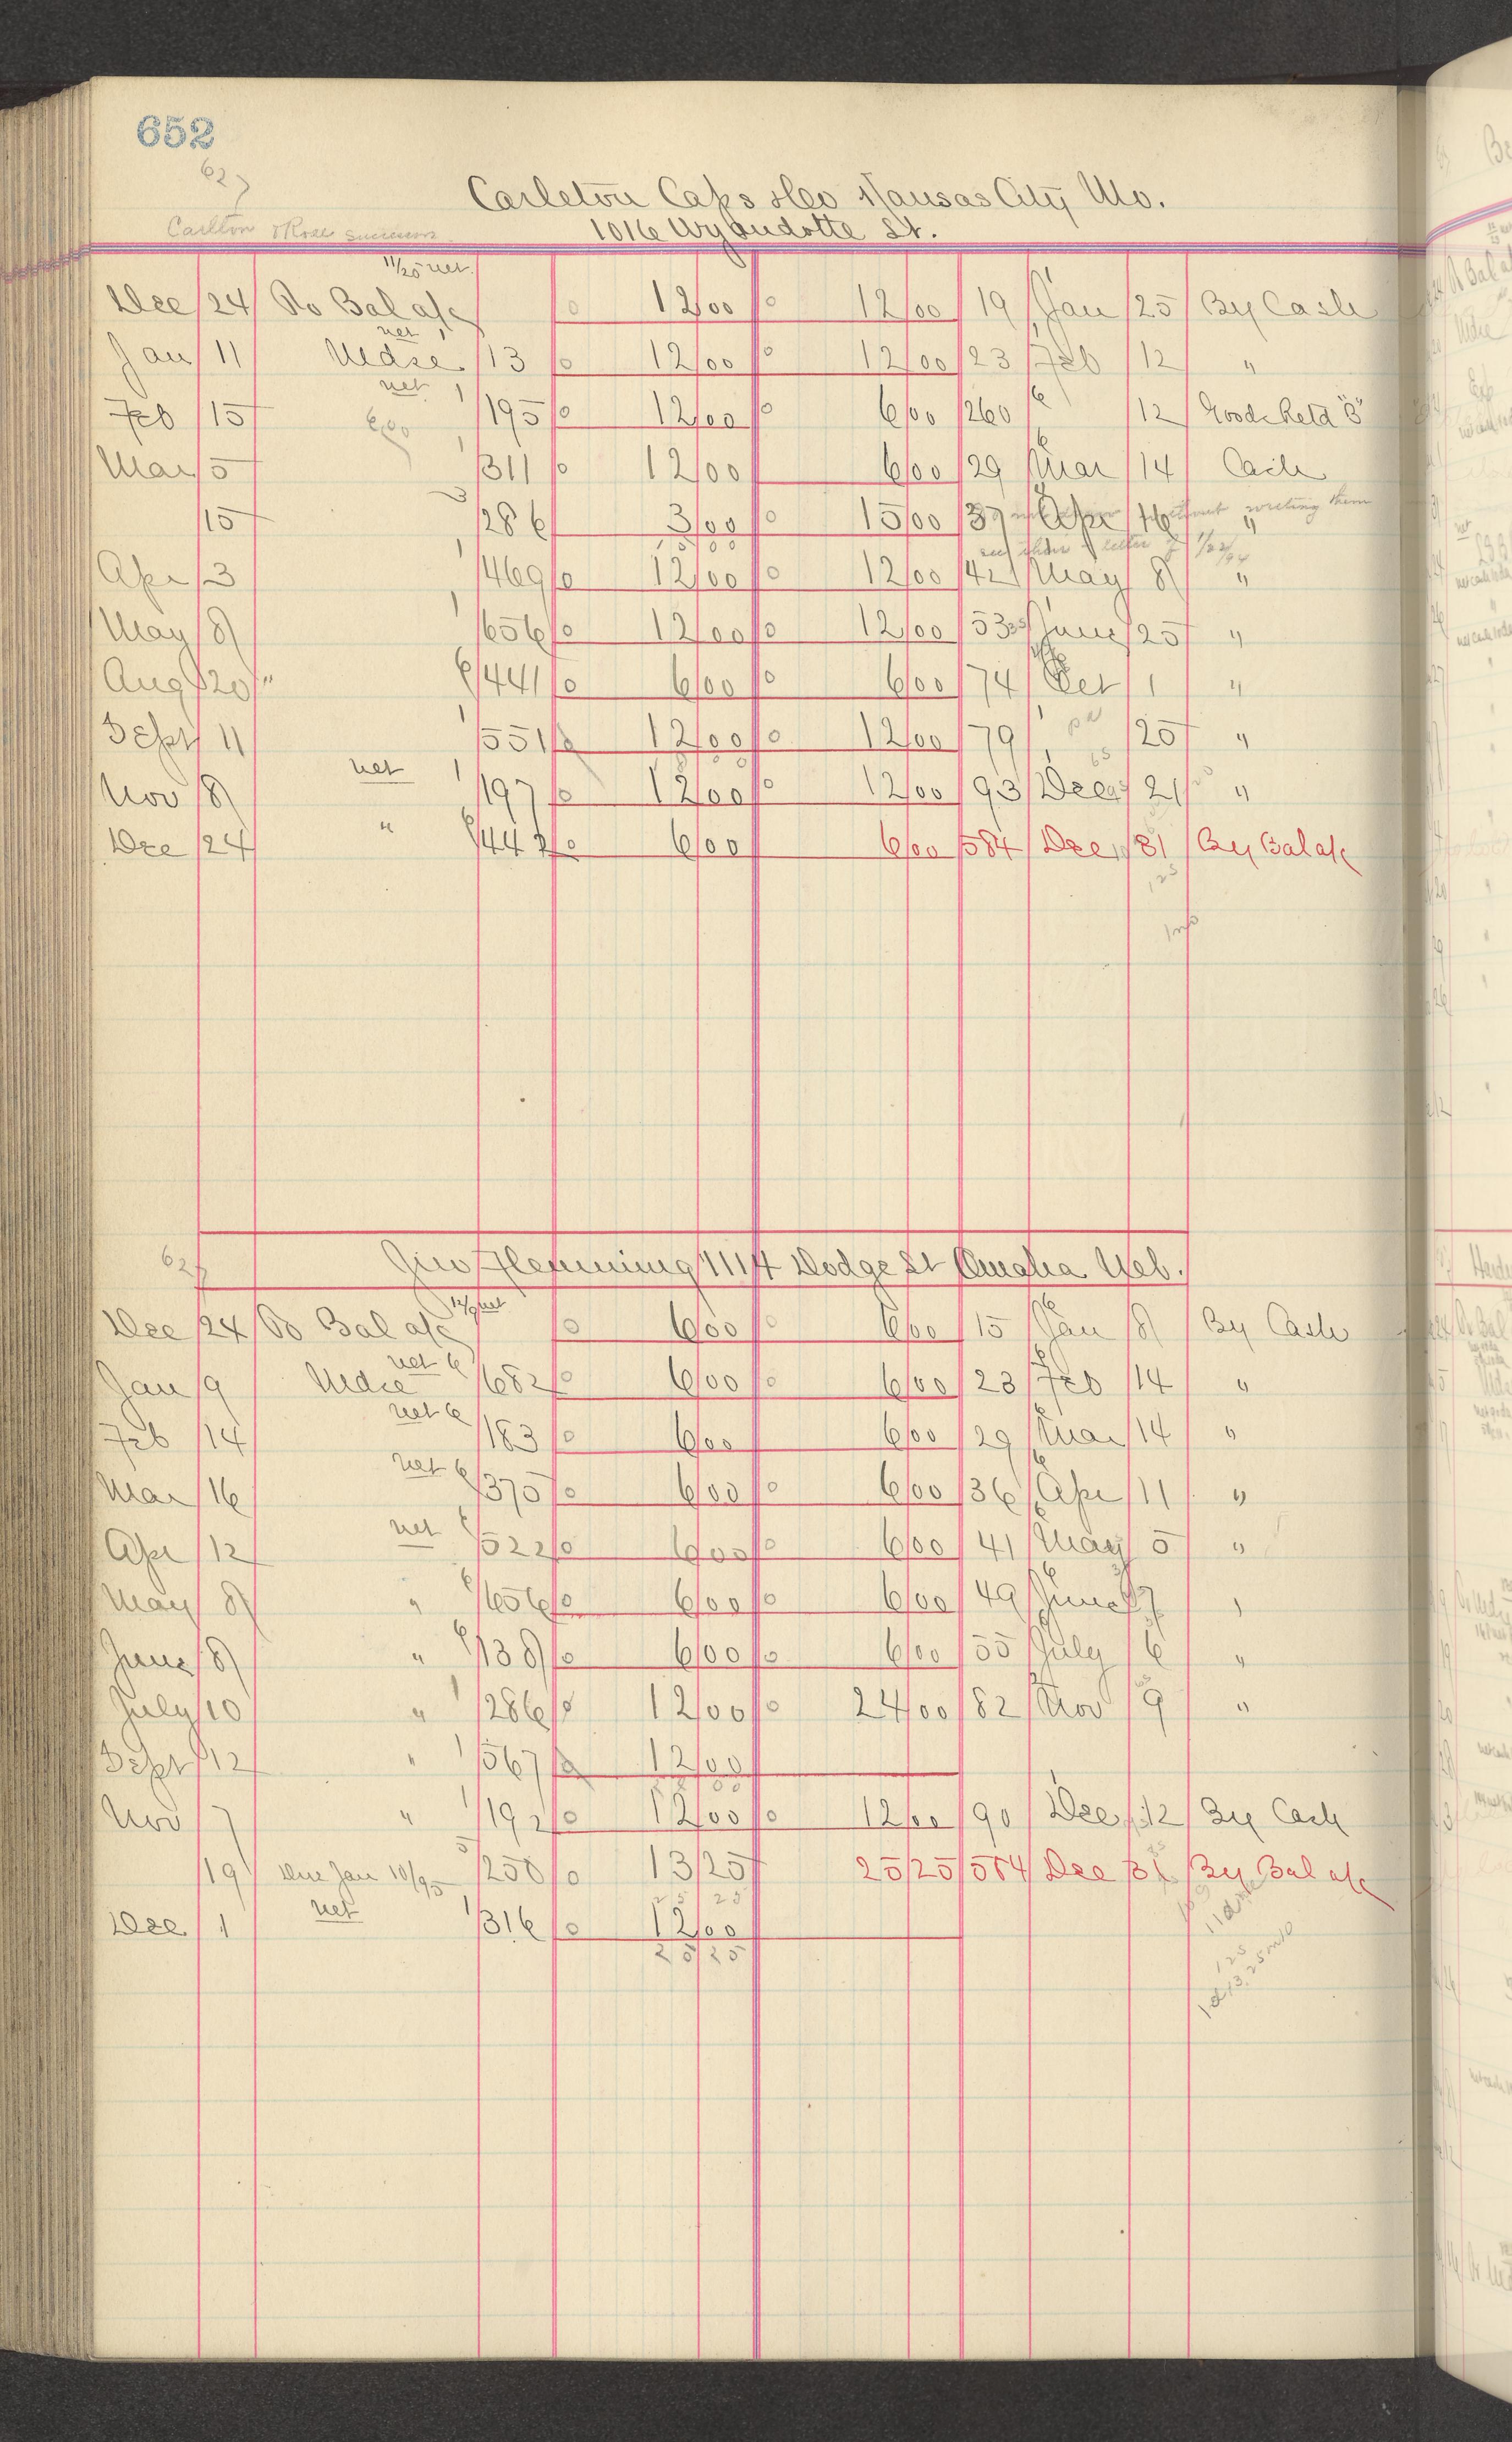 652
627
Carleton Caps & Co Kansas City Mo.
Carlton & Rose
1016 Wyandotte St.
11/25 net
Dec 24 To Bal a/c 12 00 12 00 19 Jan 25 By Cash
net
Jan 11 Mdse 1/13 12 00 12 00 23 Feb 12 "
net
Feb 15 6,00 1/195 12 00 6 00 260 12 Goods Retd "B"
Mar 5 1/311 12 00 6 00 29 Mar 14 Cash
15 3/286 3 00 15 00 37 Apr 16 "
writing them
15 00
letter of 1/22/94
Apr 3 1/469 12 00 12 00 42 May 8 "
May 8 1/656 12 00 12 00 53 June 25 "
Aug 20 " 6/441 6 00 6 00 74 Oct 1 "
Sept 11 1/551 12 00 12 00 79 20 "
net
Nov 8 1/197 12 00 12 00 93 Dec 21 "
Dec 24 " 6/442 6 00 6 00 584 Dec 31 By Bal a/c
125
627
Jno Flemming 1114 Dodge St Omaha Neb.
12/9 net
Dec 24 To Bal a/c 6 00 6 00 15 Jan 8 By Cash
net
Jan 9 Mdse 6/682 6 00 6 00 23 Feb 14 "
net
Feb 14 6/183 6 00 6 00 29 Mar 14 "
net
Mar 16 6/375 6 00 6 00 36 Apr 11 "
net
Apr 12 6/522 6 00 6 00 41 May 5 "
May 8 " 6/656 6 00 6 00 49 June 7 "
June 8 " 6/138 6 00 6 00 55 July 6 "
July 10 " 1/286 12 00 24 00 82 Nov 9 "
Sept 12 " 1/567 12 00
Nov 7 " 1/192 12 00 12 00 90 Dec 12 By Cash
19 Due Jan 10/95 5/250 13 25 25 25 584 Dec 31 By Bal a/c
25 25
net
Dec 1 1/316 12 00
25 25
125